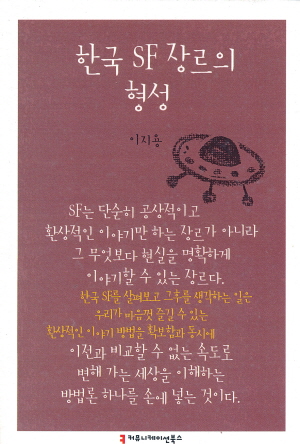 한국 SF 장르의
형성
이지용
SF는 단순히 공상적이고
환상적인 이야기만 하는 장르가 아니라
그 무엇보다 현실을 명확하게
이야기할 수 있는 장르다.
한국 SF를 살펴보고 그 후를 생각하는 일은
우리가 마음껏 즐길 수 있는
환상적인 이야기 방법을 확보함과 동시에
이전과 비교할 수 없는 속도로
변해 가는 세상을 이해하는
방법론 하나를 손에 넣는 것이다.
커뮤니케이션북스